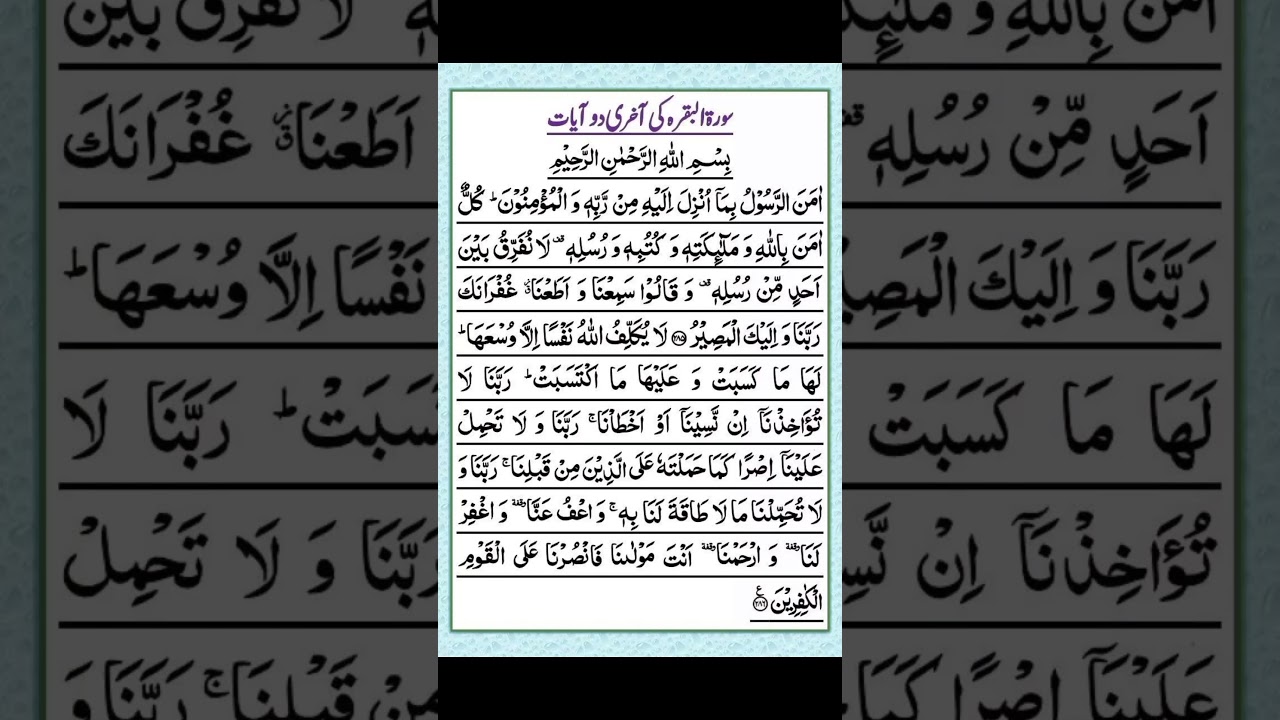 سورۃ البقرہ کی آخری دو آیات
بِسْمِ اللهِ الرَّحْمٰنِ الرَّحِيْمِ
اٰمَنَ الرَّسُوْلُ بِمَاۤ اُنْزِلَ اِلَيْهِ مِنْ رَّبِّهٖ وَ الْمُؤْمِنُوْنَ ؕ كُلٌّ
اٰمَنَ بِاللهِ وَ مَلٰٓىِٕكَتِهٖ وَ كُتُبِهٖ وَ رُسُلِهٖ ۫ لَا نُفَرِّقُ بَيْنَ
اَحَدٍ مِّنْ رُّسُلِهٖ ۫ وَ قَالُوْا سَمِعْنَا وَ اَطَعْنَا ۫ غُفْرَانَكَ
رَبَّنَا وَ اِلَيْكَ الْمَصِيْرُ ﴿۲۸۵﴾ لَا يُكَلِّفُ اللهُ نَفْسًا اِلَّا وُسْعَهَا ؕ
لَهَا مَا كَسَبَتْ وَ عَلَيْهَا مَا اكْتَسَبَتْ ؕ رَبَّنَا لَا
تُؤَاخِذْنَاۤ اِنْ نَّسِيْنَاۤ اَوْ اَخْطَاْنَا ۚ رَبَّنَا وَ لَا تَحْمِلْ
عَلَيْنَاۤ اِصْرًا كَمَا حَمَلْتَهٗ عَلَى الَّذِيْنَ مِنْ قَبْلِنَا ۚ رَبَّنَا وَ
لَا تُحَمِّلْنَا مَا لَا طَاقَةَ لَنَا بِهٖ ۚ وَ اعْفُ عَنَّا ٝ وَ اغْفِرْ
لَنَا ٝ وَ ارْحَمْنَا ٝ اَنْتَ مَوْلٰىنَا فَانْصُرْنَا عَلَى الْقَوْمِ
الْكٰفِرِيْنَ ﴿۲۸۶﴾